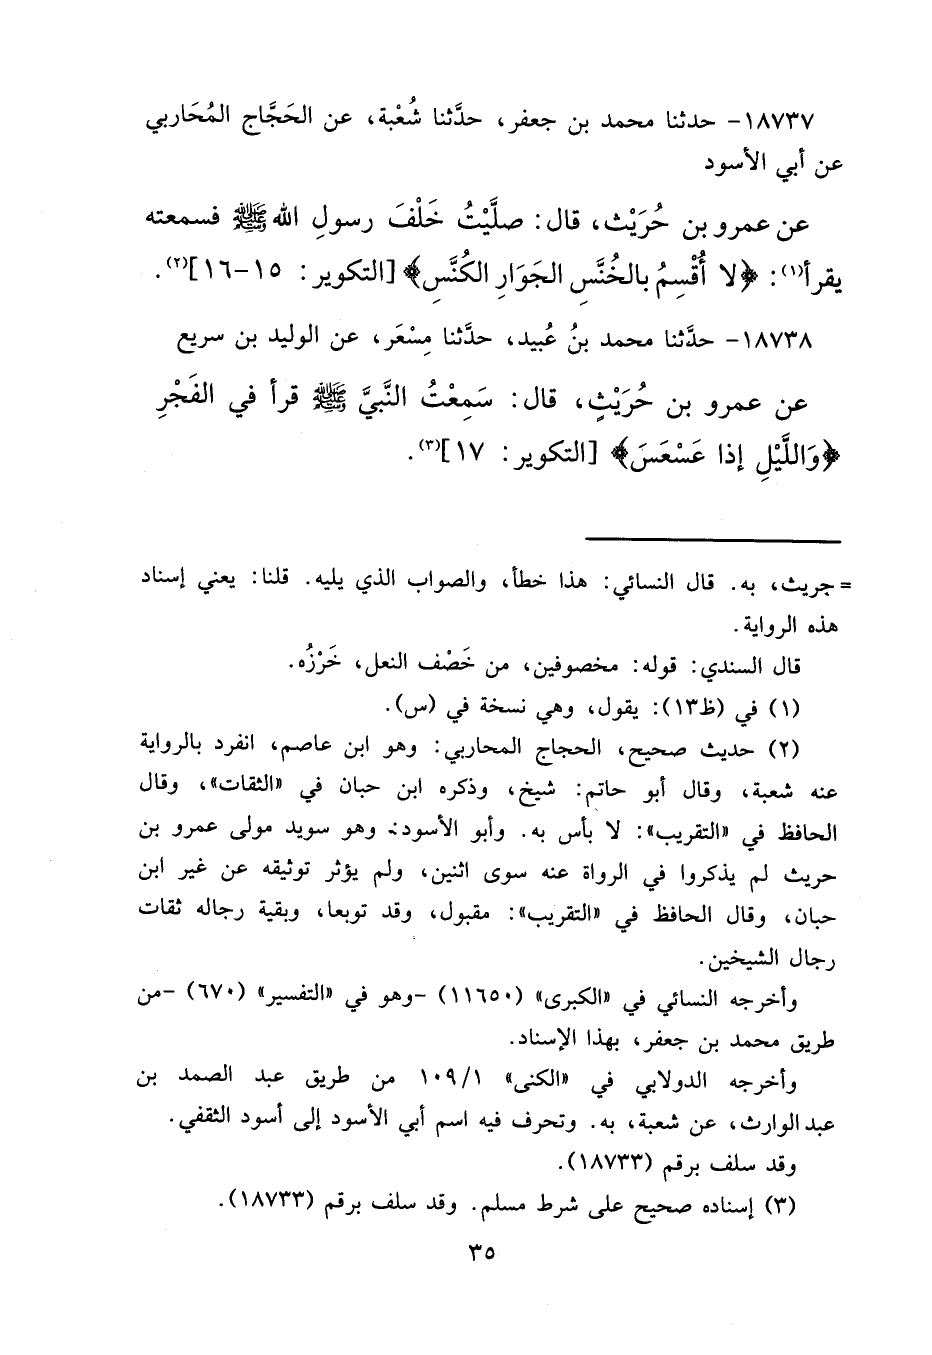 ١٨٧٣٧- حدثنا محمد بن جعفر، حدَّثنا شُعْبة، عن الحَجَّاج المُحَاربي
عن أبي الأسود
عن عمرو بن حُرَيْث، قال: صلَّيْتُ خَلْفَ رسولِ الله ﷺ فسمعته
يقرأ(١): ﴿لا أُقْسِمُ بالخُنَّسِ الجَوَارِ الكُنَّسِ﴾ [التكوير: ١٥-١٦](٢).
١٨٧٣٨- حدَّثنا محمد بنُ عُبيد، حدَّثنا مِسْعَر، عن الوليد بن سريع
عن عمرو بن حُرَيْثٍ، قال: سَمِعْتُ النَّبيَّ ﷺ قرأ في الفَجْرِ
﴿وَاللَّيْلِ إذا عَسْعَسَ﴾ [التكوير: ١٧](٣).
= جريث، به. قال النسائي: هذا خطأ، والصواب الذي يليه. قلنا: يعني إسناد
هذه الرواية.
قال السندي: قوله: مخصوفين، من خَصْف النعل، خَرْزُه.
(١) في (ظ١٣): يقول، وهي نسخة في (س).
(٢) حديث صحيح، الحجاج المحاربي: وهو ابن عاصم، انفرد بالرواية
عنه شعبة، وقال أبو حاتم: شيخ، وذكره ابن حبان في «الثقات»، وقال
الحافظ في «التقريب»: لا بأس به. وأبو الأسود: وهو سويد مولى عمرو بن
حريث لم يذكروا في الرواة عنه سوى اثنين، ولم يؤثر توثيقه عن غير ابن
حبان، وقال الحافظ في «التقريب»: مقبول، وقد توبعا، وبقية رجاله ثقات
رجال الشيخين.
وأخرجه النسائي في «الكبرى» (١١٦٥٠) -وهو في «التفسير» (٦٧٠) -من
طريق محمد بن جعفر، بهذا الإسناد.
وأخرجه الدولابي في «الكنى» ١٠٩/١ من طريق عبد الصمد بن
عبد الوارث، عن شعبة، به. وتحرف فيه اسم أبي الأسود إلى أسود الثقفي.
وقد سلف برقم (١٨٧٣٣).
(٣) إسناده صحيح على شرط مسلم. وقد سلف برقم (١٨٧٣٣).
٣٥